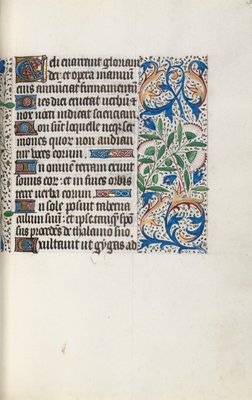 Celi enarrant gloriam
dei: et opera manuu
eius annuntiat firmamentum
Dies diei eructat verbum: et
nox nocti indicat scienciam
Non sunt loquelle neque ser
mones: quor non audian
tur voces eorum
In omnem terram exiuit
sonus eor: et in fines orbis
terre verba eorum
In sole posuit taberna
culum suum: et ipse tanquam spon
sus procedens de thalamo suo
Exultauit ut gygas ad